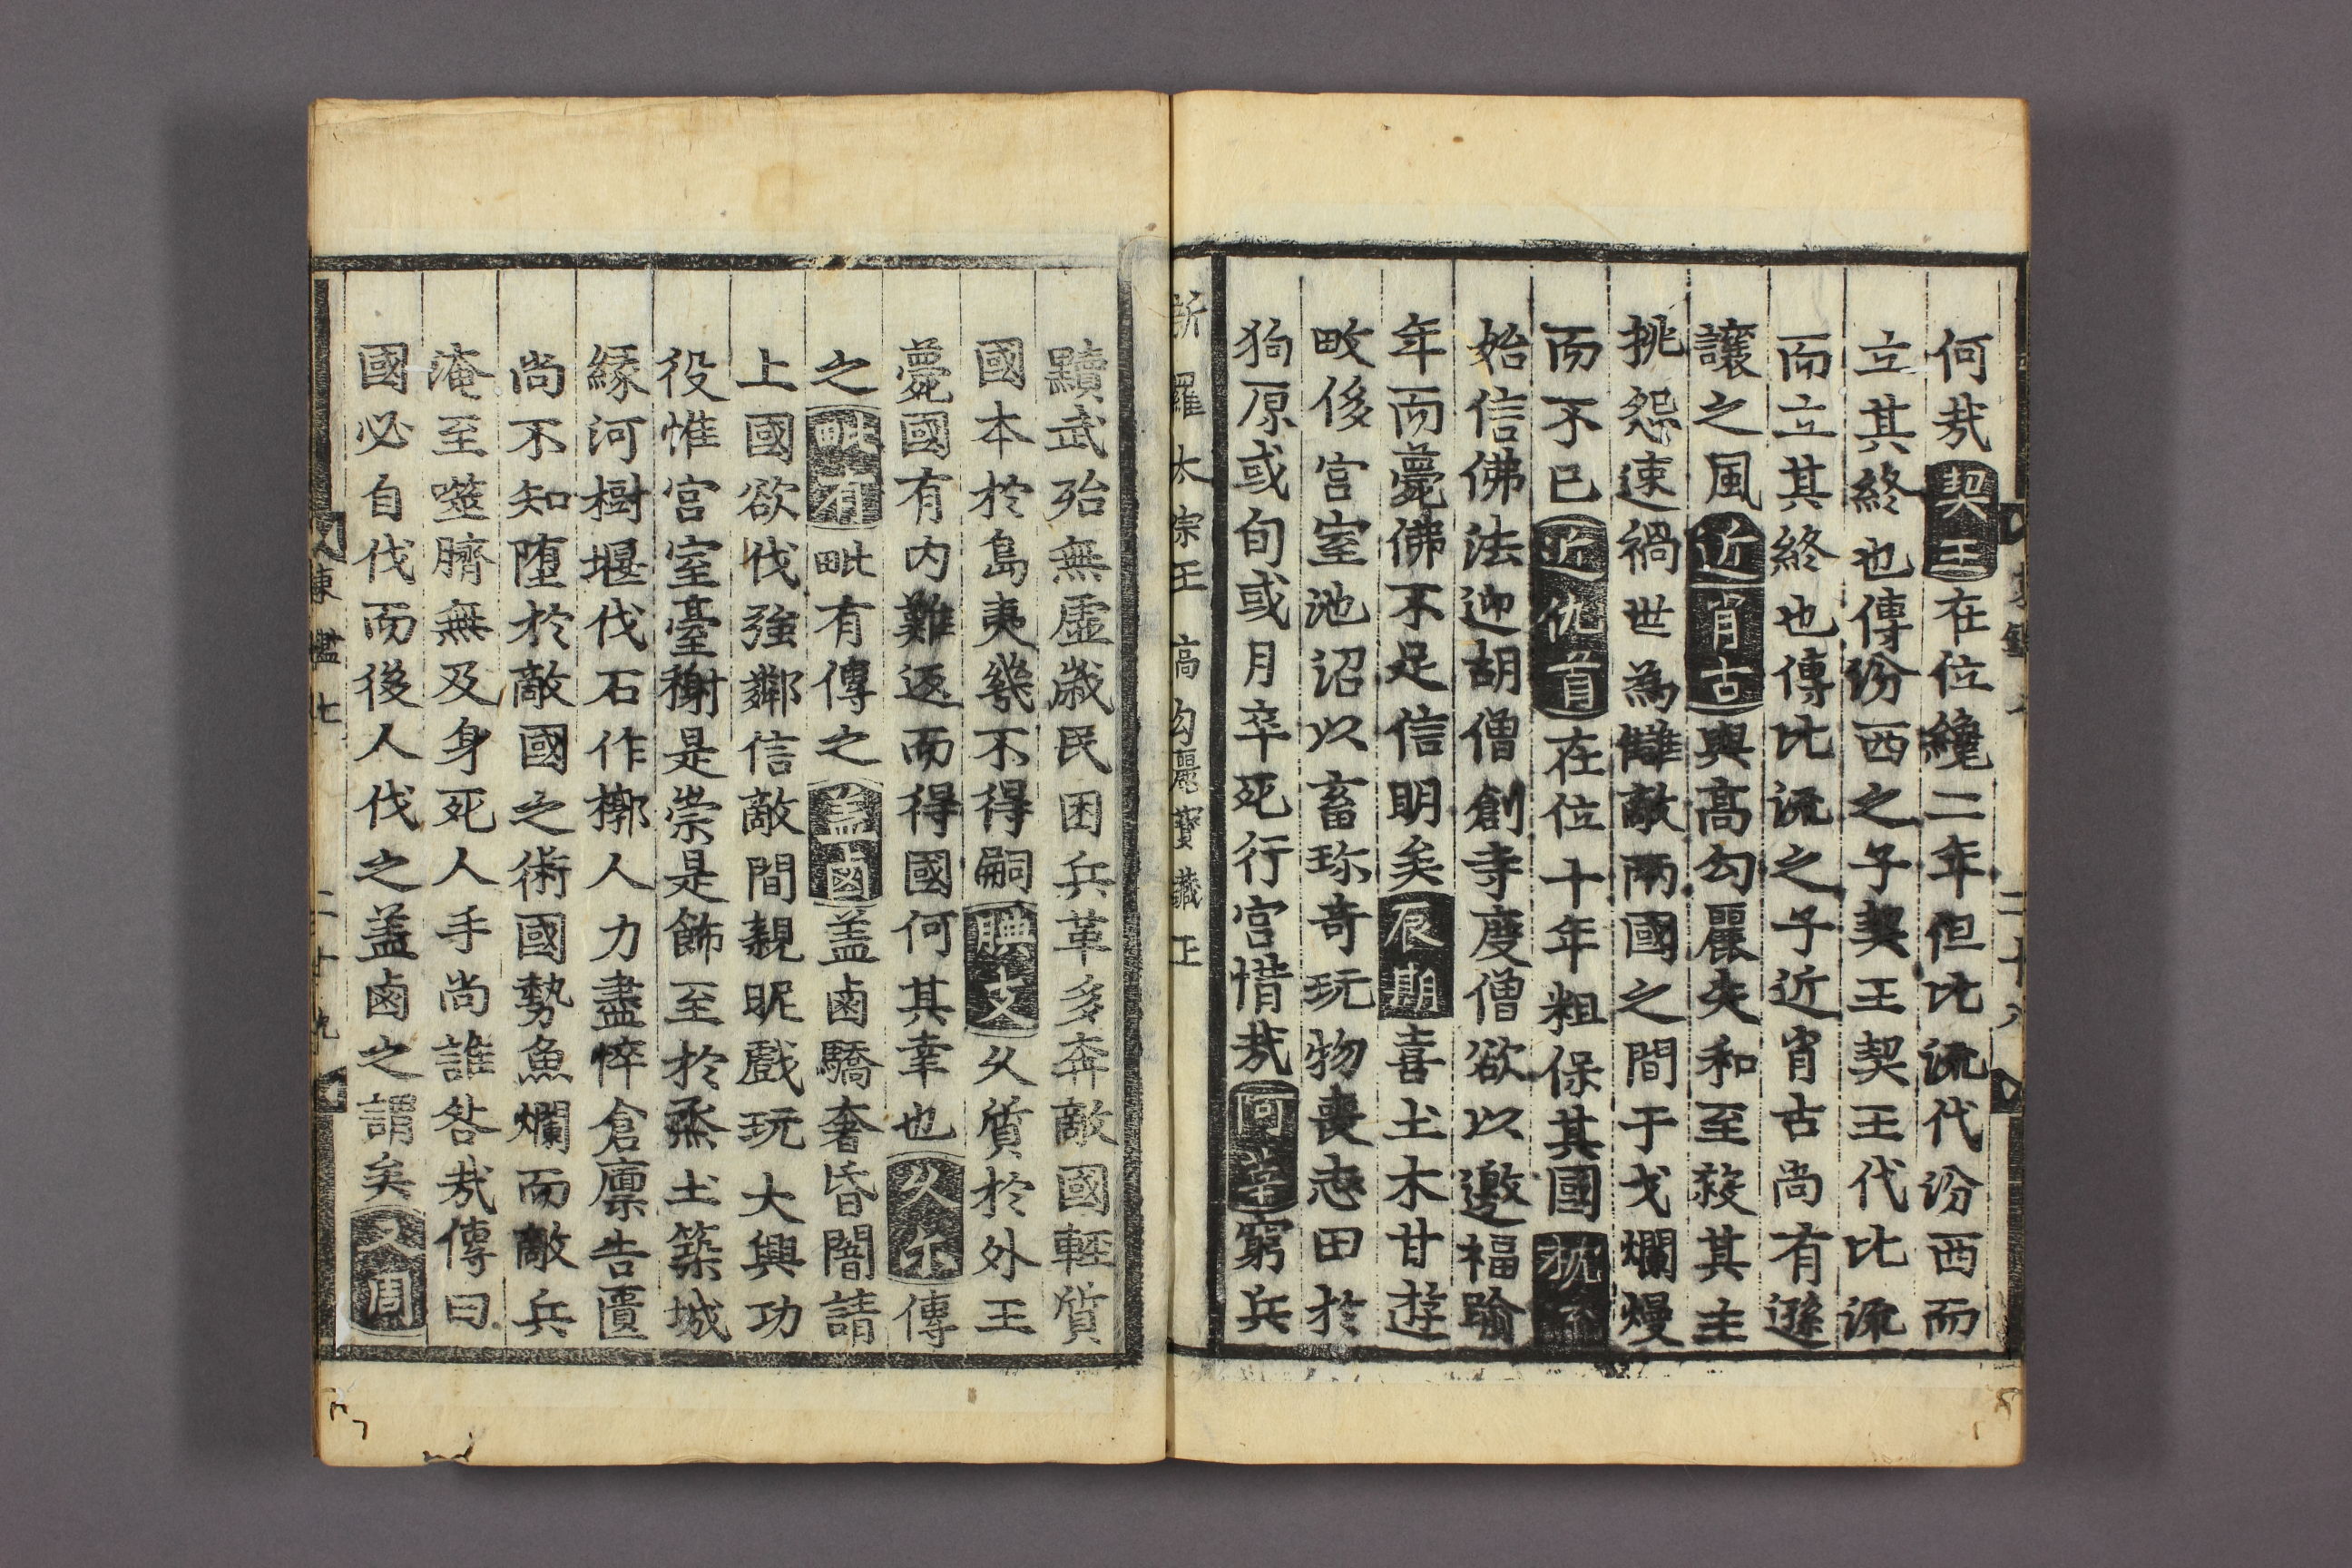 何㢤契王在位纔二年但比流代汾西而
立其終也傳汾西之子契王契王代比流
而立其終也傳比流之子近肖古尚有遜
讓之風近肖古與高勾麗失和至殺其主
挑怨速禍世為讎敵兩國之間于戈爛熳
而不已近仇首在位十年粗保其國枕流
始信佛法迎胡僧創寺度僧欲以邀福踰
年而薨佛不足信明矣辰斯喜土木甘逰
畋侈宮室池沼以畜珎奇玩物喪志田於
狗原或旬或月卒死行宮惜㢤阿莘窮兵
新羅太宗王 高勾麗寶藏王
黷武殆無虛歲民困兵革多奔敵國輕質
國本於島夷㡬不得嗣腆支久質於外王
薨國有內難返而得國何其幸也久尒傳
之毗有毗有傳之盖鹵盖鹵驕奢昏闇請
上國欲伐強鄰信敵間親昵戲玩大興功
役惟宮室臺榭是崇是飾至於烝土築城
緣河樹堰伐石作槨人力盡悴倉廩告匱
尚不知墮於敵國之術國勢魚爛而敵兵
淹至噬臍無及身死人手尚誰咎㢤傳曰
國必自伐而後人伐之盖鹵之謂矣文周
東鑑七 二十九